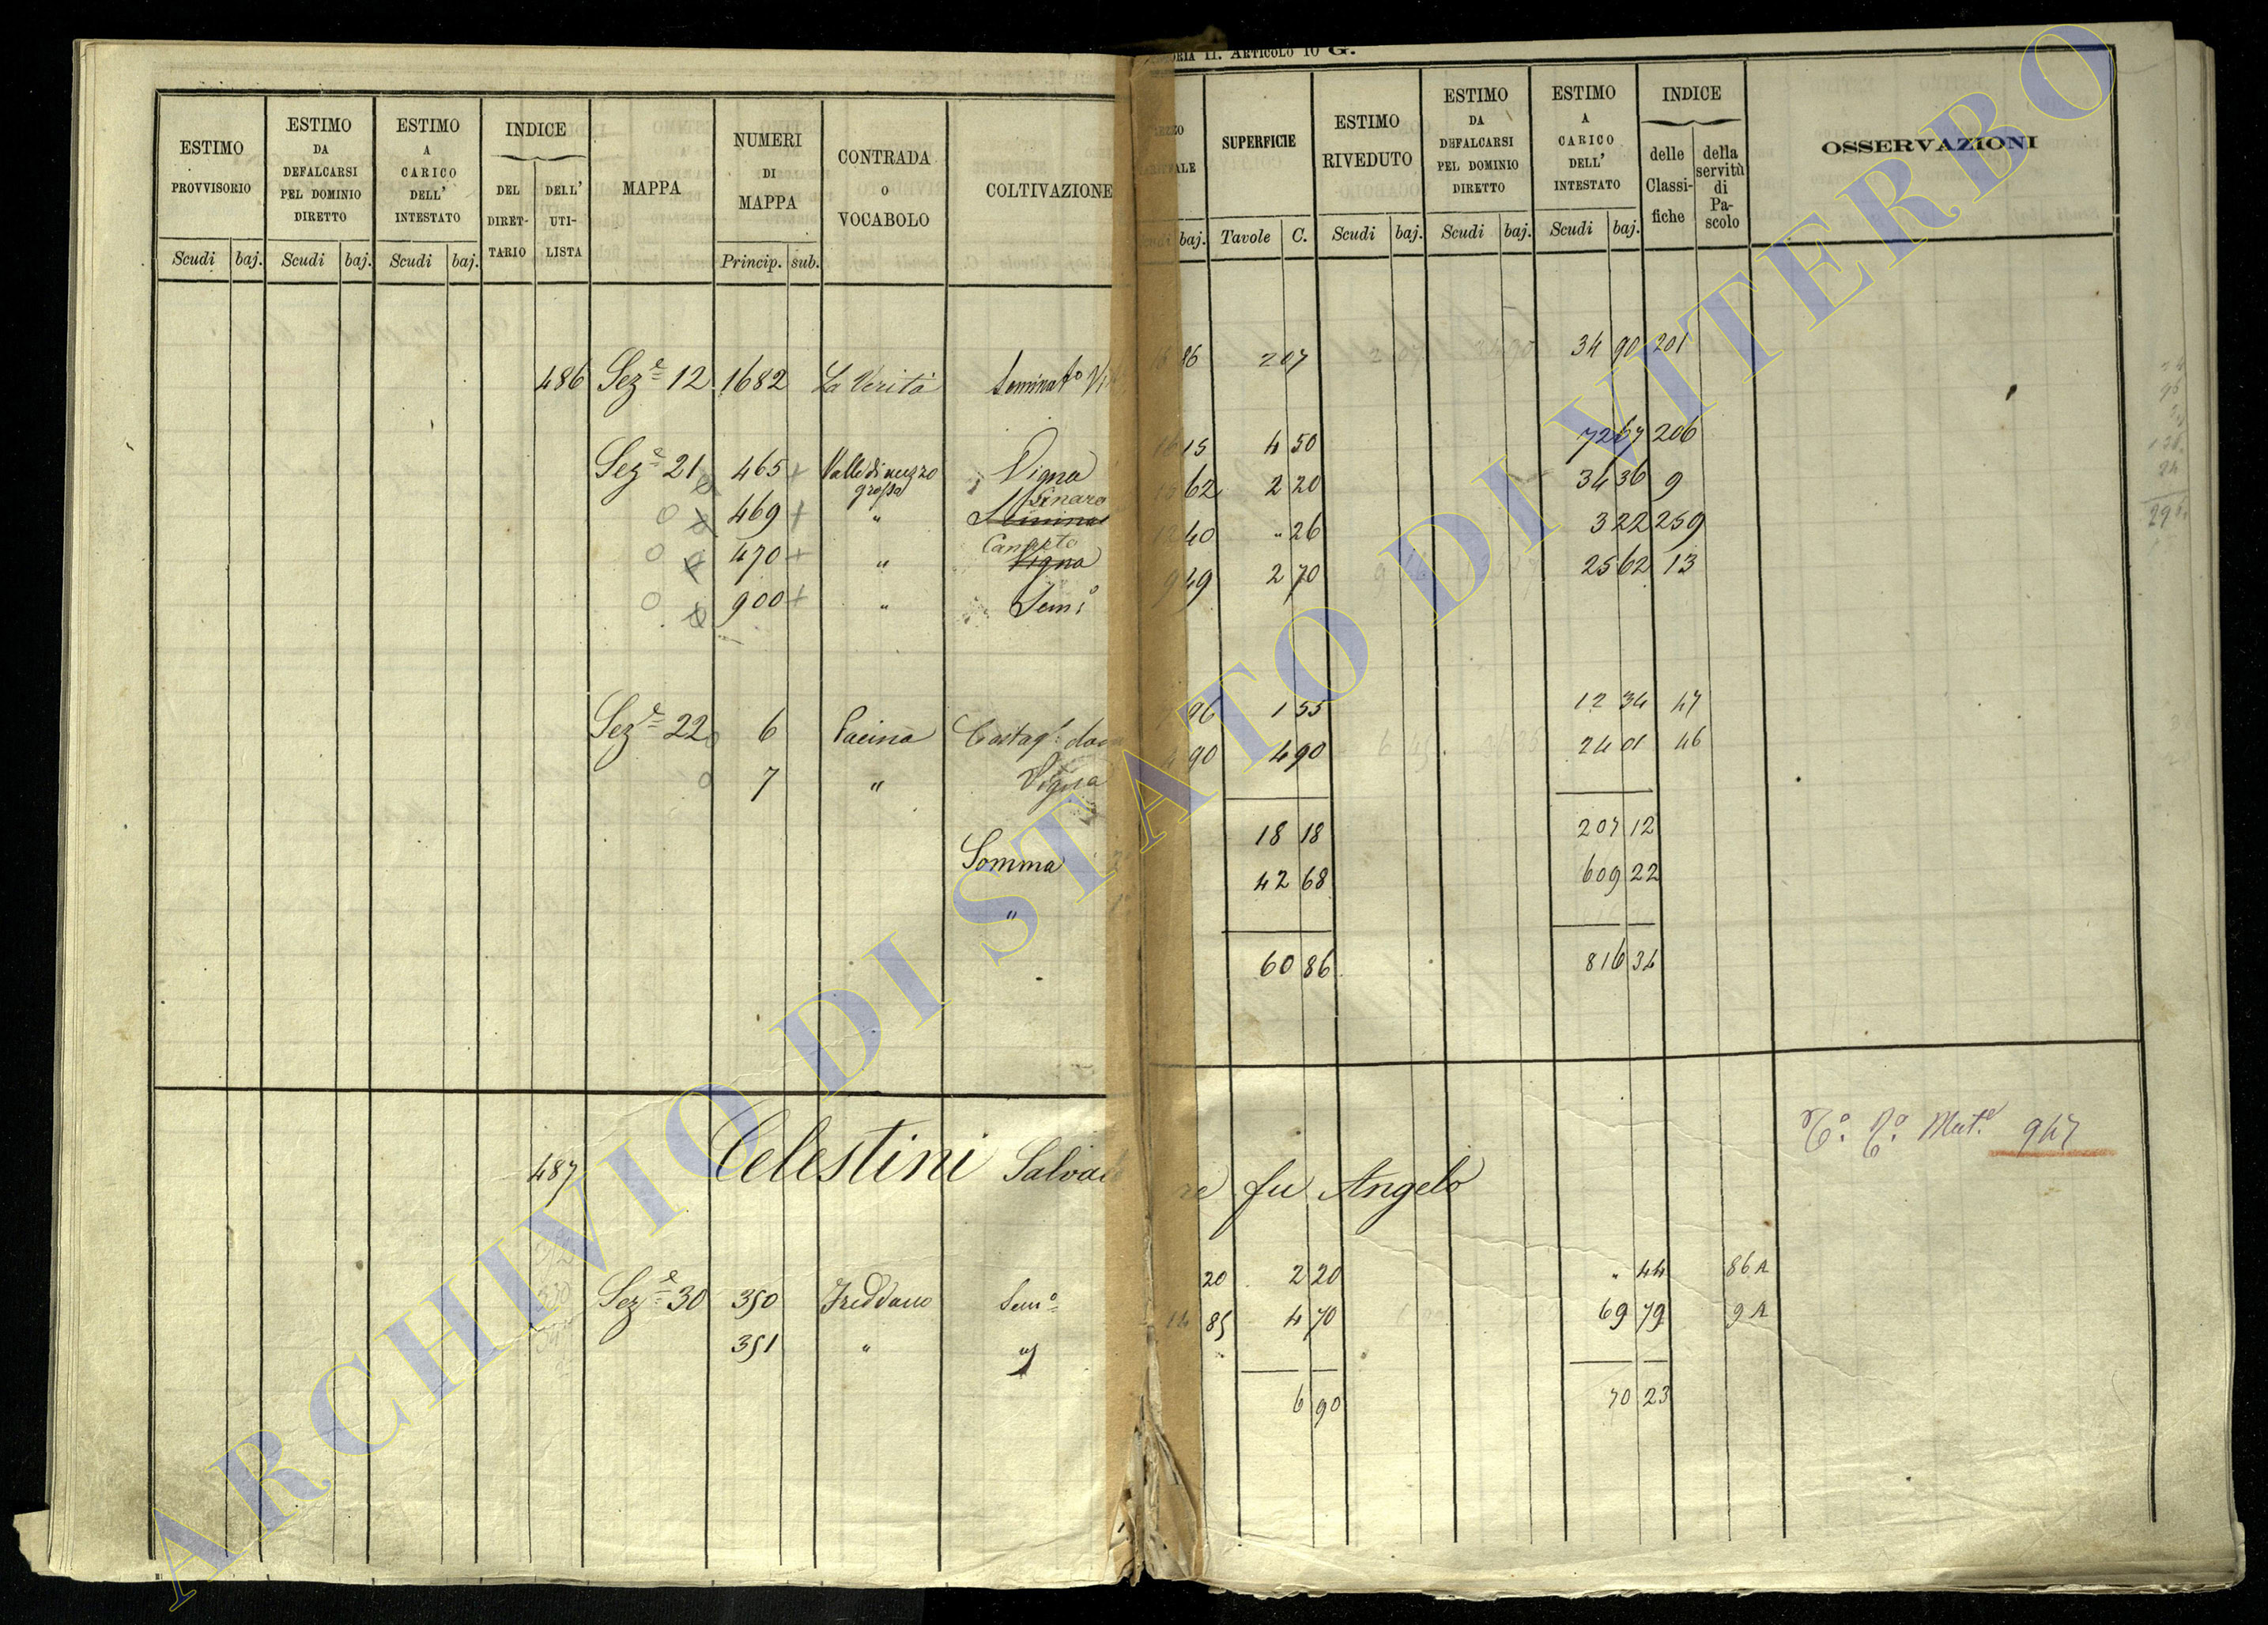 ORIA II. ARTICOLO 10 G.
ESTIMO PROVVISORIO
Scudi baj.
ESTIMO DA DEFALCARSI PEL DOMINIO DIRETTO
Scudi baj.
ESTIMO A CARICO DELL' INTESTATO
Scudi baj.
INDICE
DEL DIRET-TARIO
DELL' UTI-LISTA
MAPPA
NUMERI DI MAPPA
Princip. sub.
CONTRADA o VOCABOLO
COLTIVAZIONE
baj.
SUPERFICIE
Tavole C.
ESTIMO RIVEDUTO
Scudi baj.
ESTIMO DA DEFALCARSI PEL DOMINIO DIRETTO
Scudi baj.
ESTIMO A CARICO DELL' INTESTATO
Scudi baj.
INDICE
delle Classi-fiche
della servitù di Pa-scolo
OSSERVAZIONI
486 Sez.e 12 1682 La Verità Seminato Vi 86 2 07 34 90 201
Sez.e 21 465 + Valle di mezzo grossa Vigna 15 4 50 72 67 206
469 + " 62 2 20 34 36 9
470 + " Canneto Vigna 40 " 26 3 22 259
900 + " Sem.o 9 49 2 70 25 62 13
Sez.e 22 6 Pacina Castag. 96 1 55 12 34 47
7 " Vigna 90 4 90 24 01 46
Somma 18 18 207 12
" 42 68 609 22
60 86 816 34
487 Celestini Salvatore fu Angelo
Mat.e 947
Sez.e 30 350 Freddano Sem.o 20 2 20 " 44 86 A
351 " " 14 85 4 70 69 79 9 A
6 90 70 23
ARCHIVIO DI STATO DI VITERBO